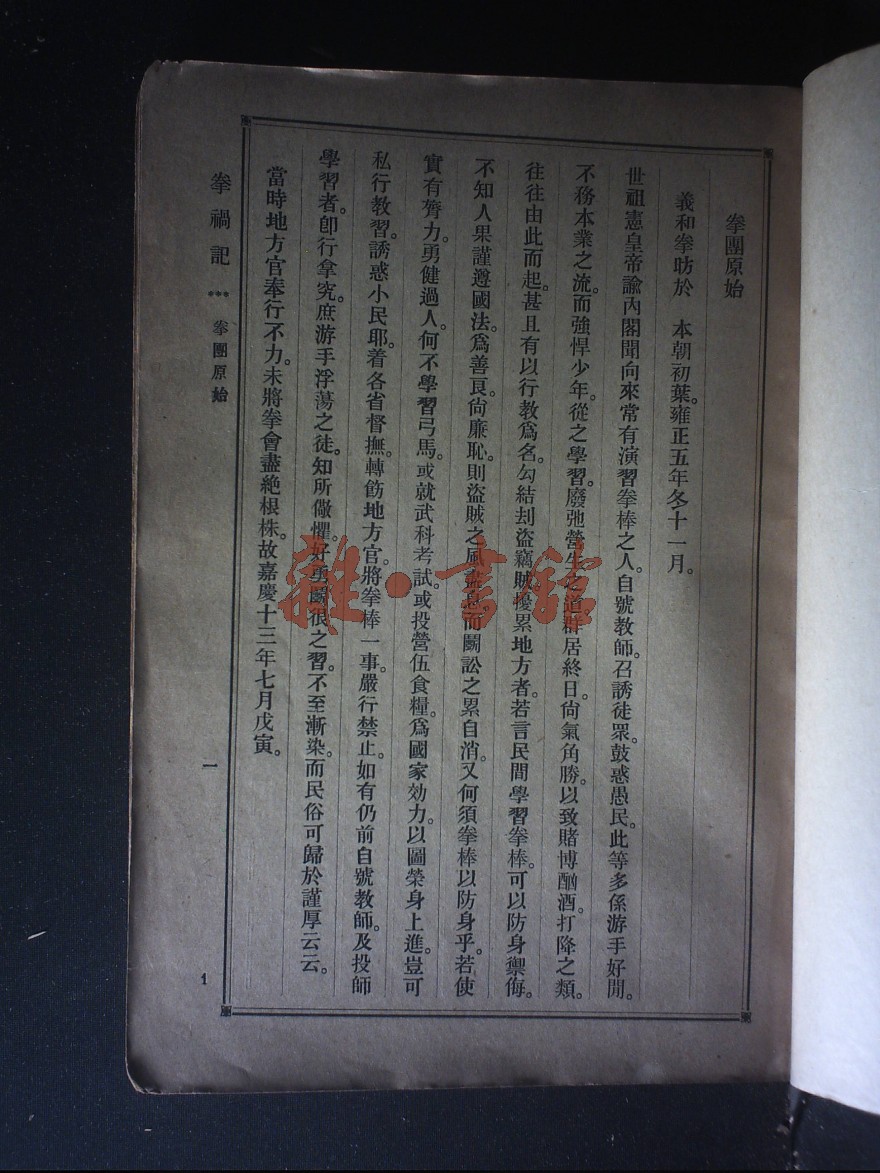 拳團原始
義和拳昉於　本朝初葉。雍正五年冬十一月。
世祖憲皇帝諭內閣聞向來常有演習拳棒之人。自號教師。召誘徒眾。鼓惑愚民。此等多係游手好閒。
不務本業之流。而強悍少年。從之學習。廢弛營生之道。群居終日。尙氣角勝。以致賭博酗酒。打降之類。
往往由此而起。甚且有以行教爲名。勾結刦盜竊賊擾累地方者。若言民間學習拳棒。可以防身禦侮。
不知人果謹遵國法。爲善良。尙廉恥。則盜賊之風盡息而鬬訟之累自消。又何須拳棒以防身乎。若使
實有膂力。勇健過人。何不學習弓馬。或就武科考試。或投營伍食糧。爲國家効力。以圖榮身上進。豈可
私行教習。誘惑小民耶。着各省督撫。轉飭地方官。將拳棒一事。嚴行禁止。如有仍前自號教師。及投師
學習者。卽行拿究。庶游手浮蕩之徒。知所儆懼。好勇鬬很之習。不至漸染。而民俗可歸於謹厚云云。
當時地方官奉行不力。未將拳會盡絕根株。故嘉慶十三年七月戊寅。
拳禍記 拳團原始 一 1
雜·書館